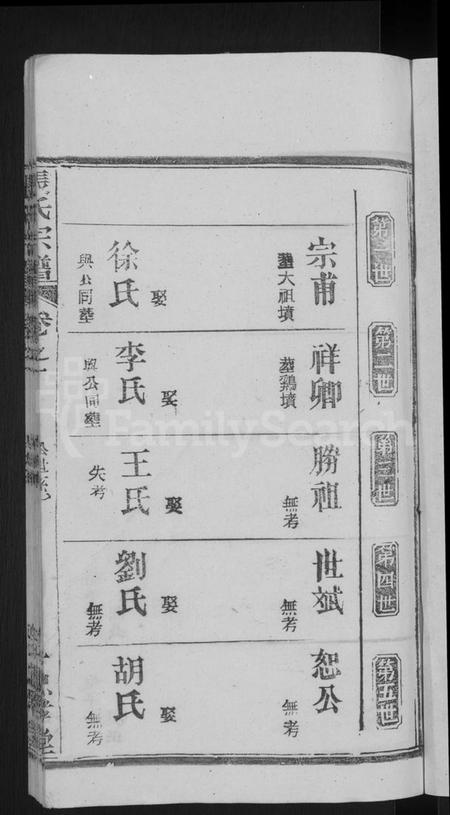 第一世
宗甫
塟大祖墳
娶
徐氏
與公同塟
第二世
祥卿
葬鷄墳
娶
李氏
與公同塟
第三世
勝祖
無考
娶
王氏
失考
第四世
世斌
無考
娶
劉氏
無考
第五世
恕公
無考
娶
胡氏
無考
氏宗譜
卷之一
FamilySearch